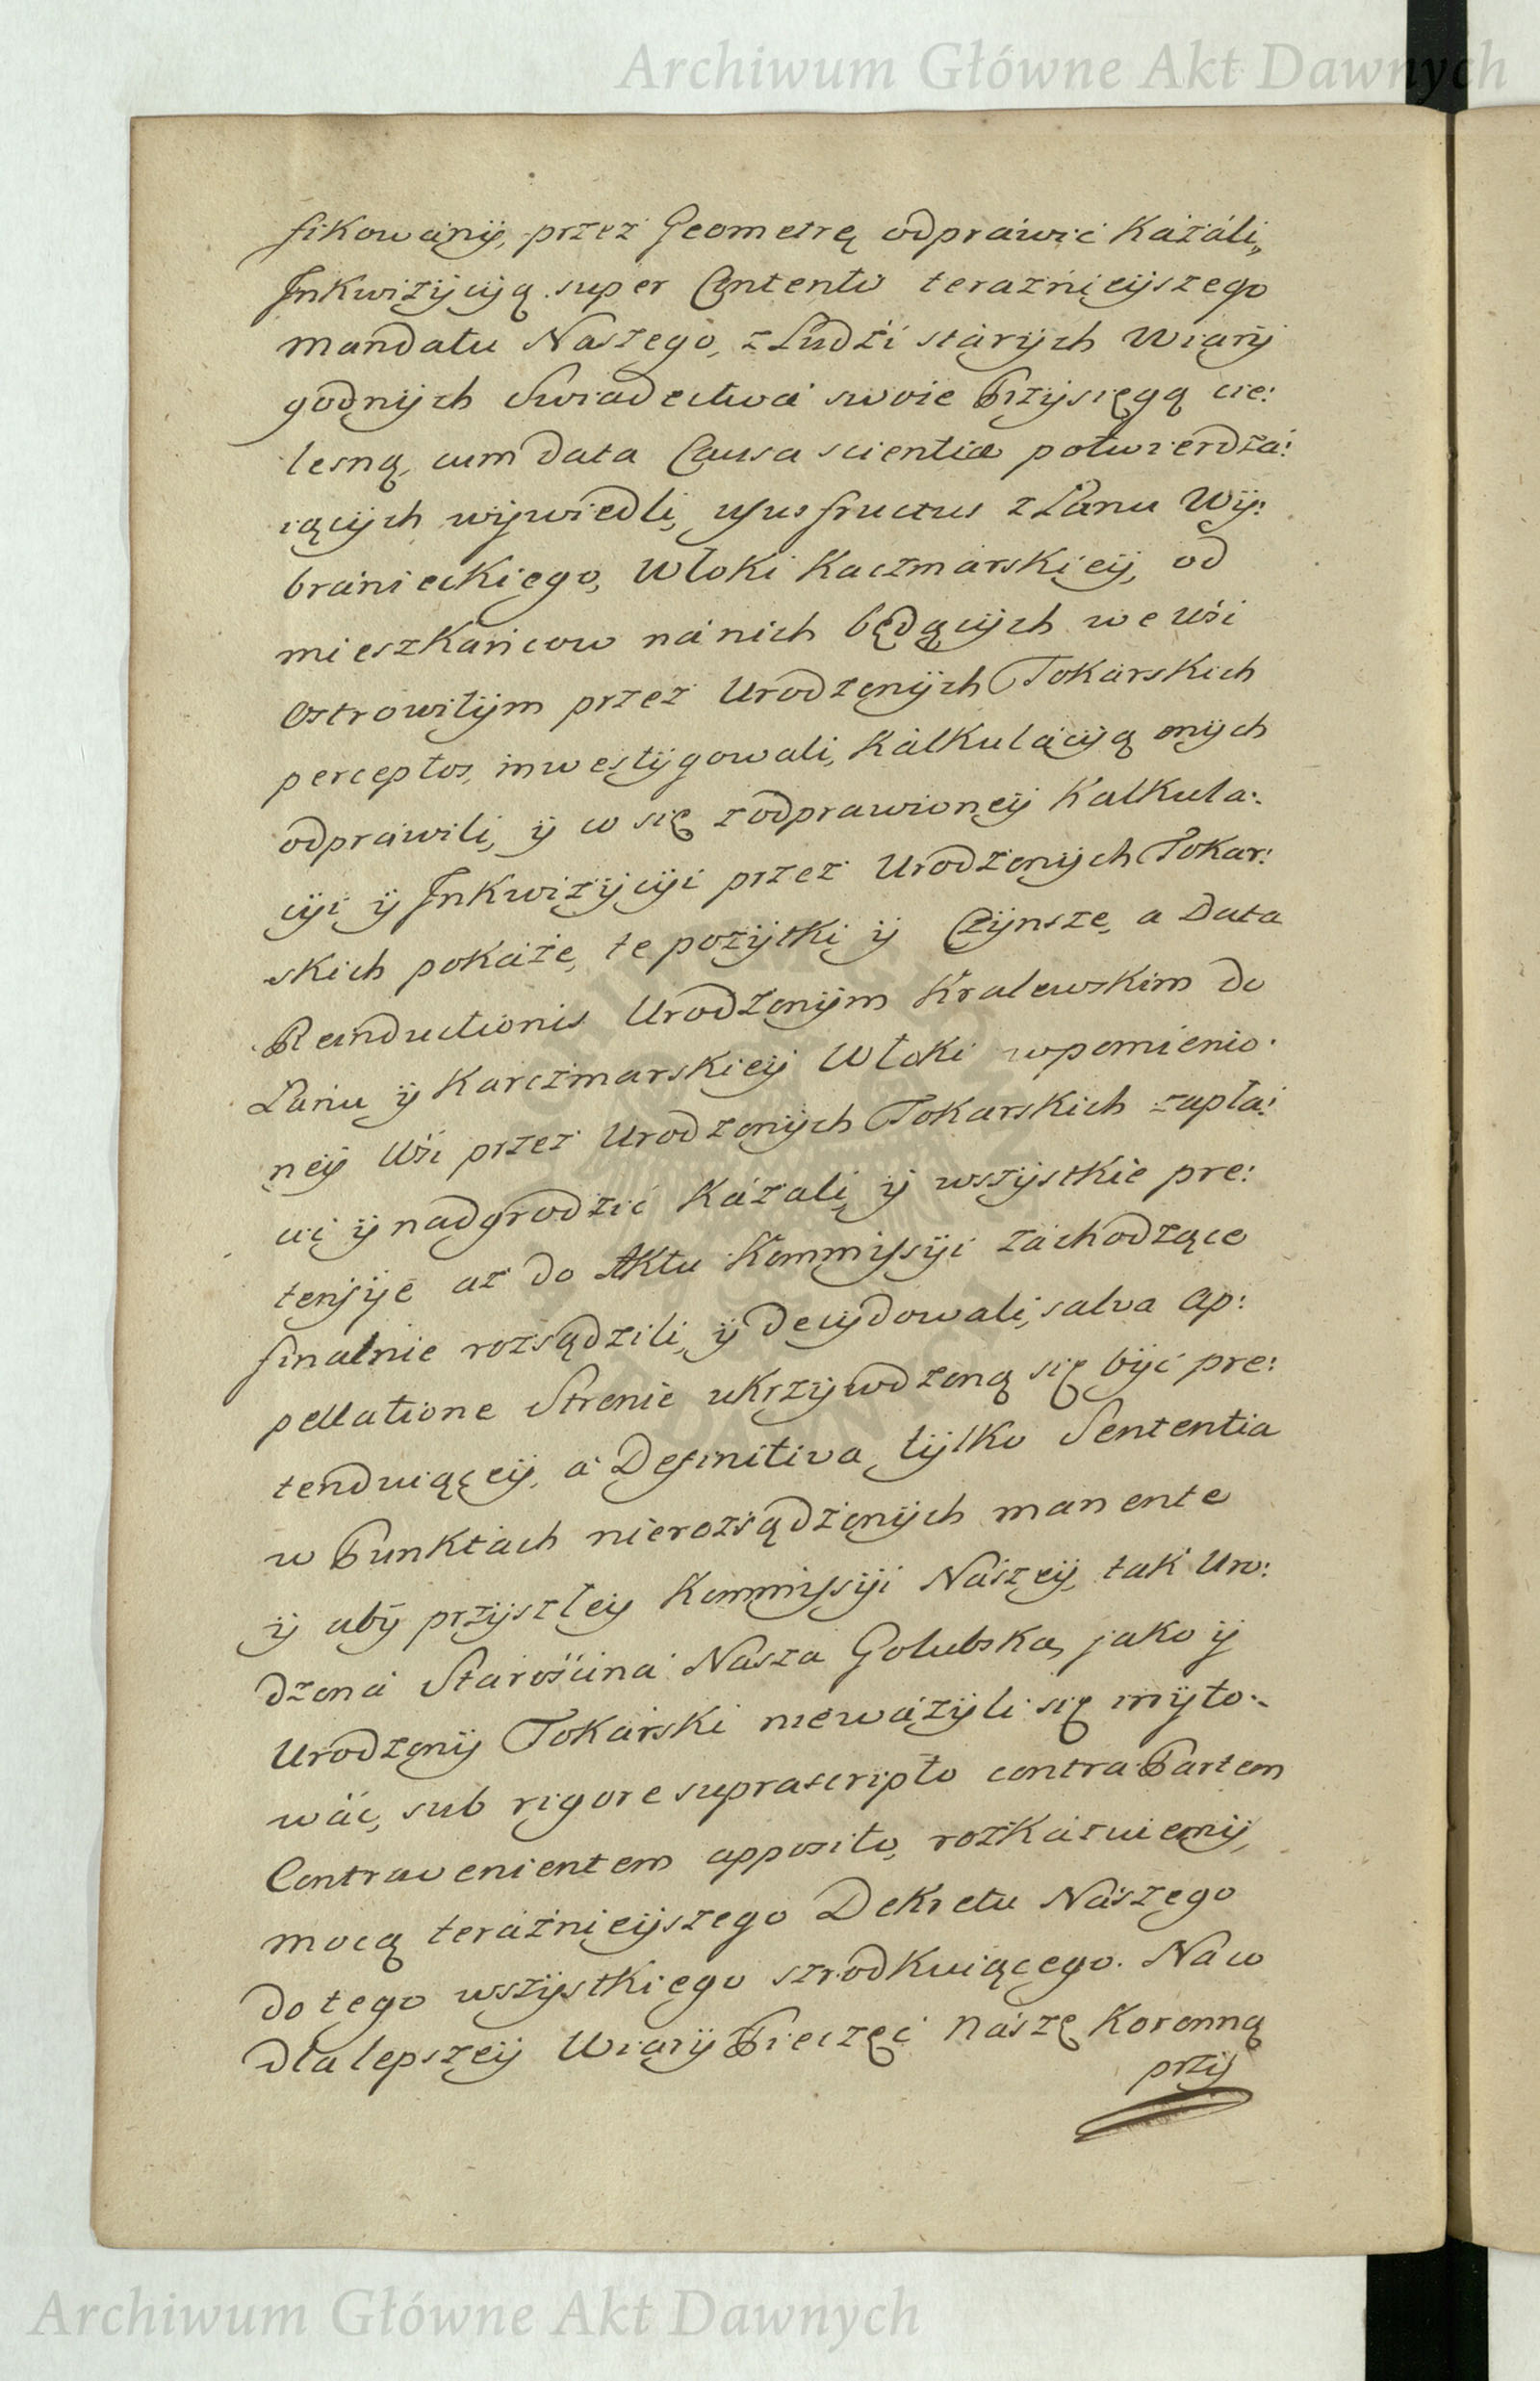 Archiwum Główne Akt Dawnych
fikowany, przez Geometrę odprawić kazali,
Inkwizycyą super Contento teraznieyszego
mandatu Naszego, z Ludzi starych wiary
godnych Swiadectwa swoie Przysięgą cie:
lesną, cum data Causa scientiæ potwierdza:
iących wywiedli, usus fructus z Łanu Wy:
branieckiego, Włoki Kaczmarskiey, od
mieszkańcow na nich będących we wsi
Ostrowitym przez Urodzonych Tokarskich
perceptos, inwestygowali, Kalkulacyą onych
odprawili, y co się z odprawioney Kalkula:
cyi y Inkwizycyi przez Urodzonych Tokar:
skich pokaże, te pozytki y Czynsze, a Data
Reinductionis Urodzonym Kralewskim do
Łanu y Karczmarskiey Włoki wpomienio:
ney Wsi przez Urodzonych Tokarskich zapła:
cić y nadgrodzić kazali, y wszystkie pre:
tensye az do Aktu Kommissyi zachodzące
finalnie rozsądzili, y decydowali, salva Ap:
pellatione Stronie ukrzywdzoną się być pre:
tenduiącey, a Definitiva tylko Sententia
w Punktach nierozsądzonych manente
y aby przyszłey Kommissyi Naszey, tak Uro:
dzona Starościna Nasza Golubska, jako y
Urodzony Tokarski nieważyli się inyto:
wać, sub rigore suprascripto contra Partem
Contravenientem apposito, rozkazuiemy,
mocą teraznieyszego Dekretu Naszego
do tego wszystkiego szrodkuiącego. Na co
dla lepszey Wiary Pieczęć Naszę Koronną
przy
Archiwum Główne Akt Dawnych